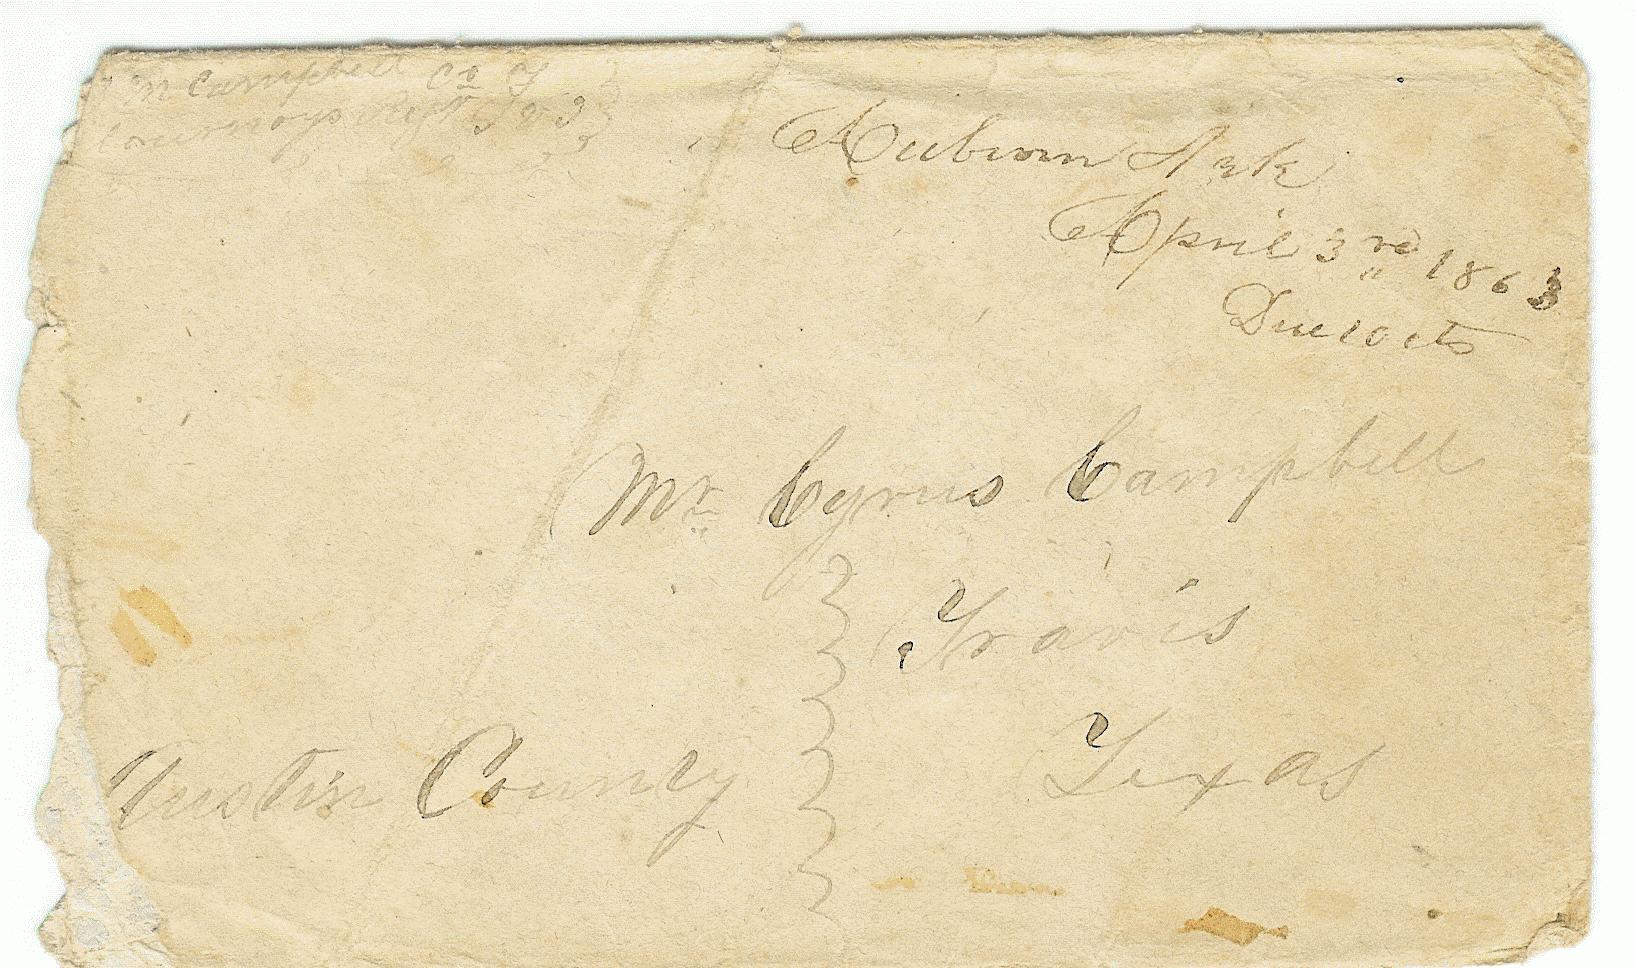 M Campbell Co G
Regt T V I
Auburn Ark
April 3rd 1863
Due 10 cts
Mr Cyrus Campbell
Travis
Austin County Texas